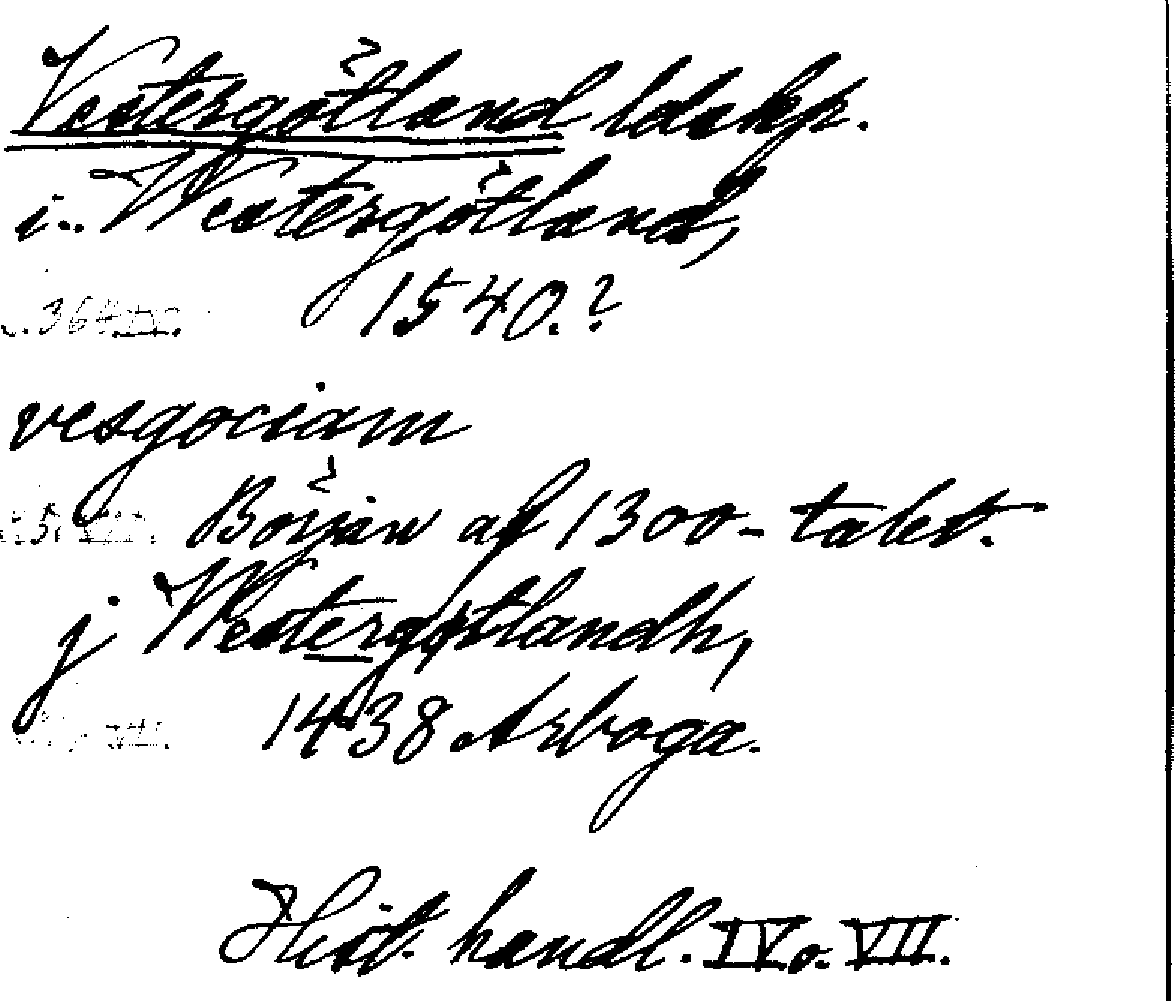 Vestergötland ldskp.
i.. Westergötland,
1540.?
vesgociam
Början af 1300-talet.
j Westergøtlandh,
1438 Arboga.
Hist. handl. IV o. VII.